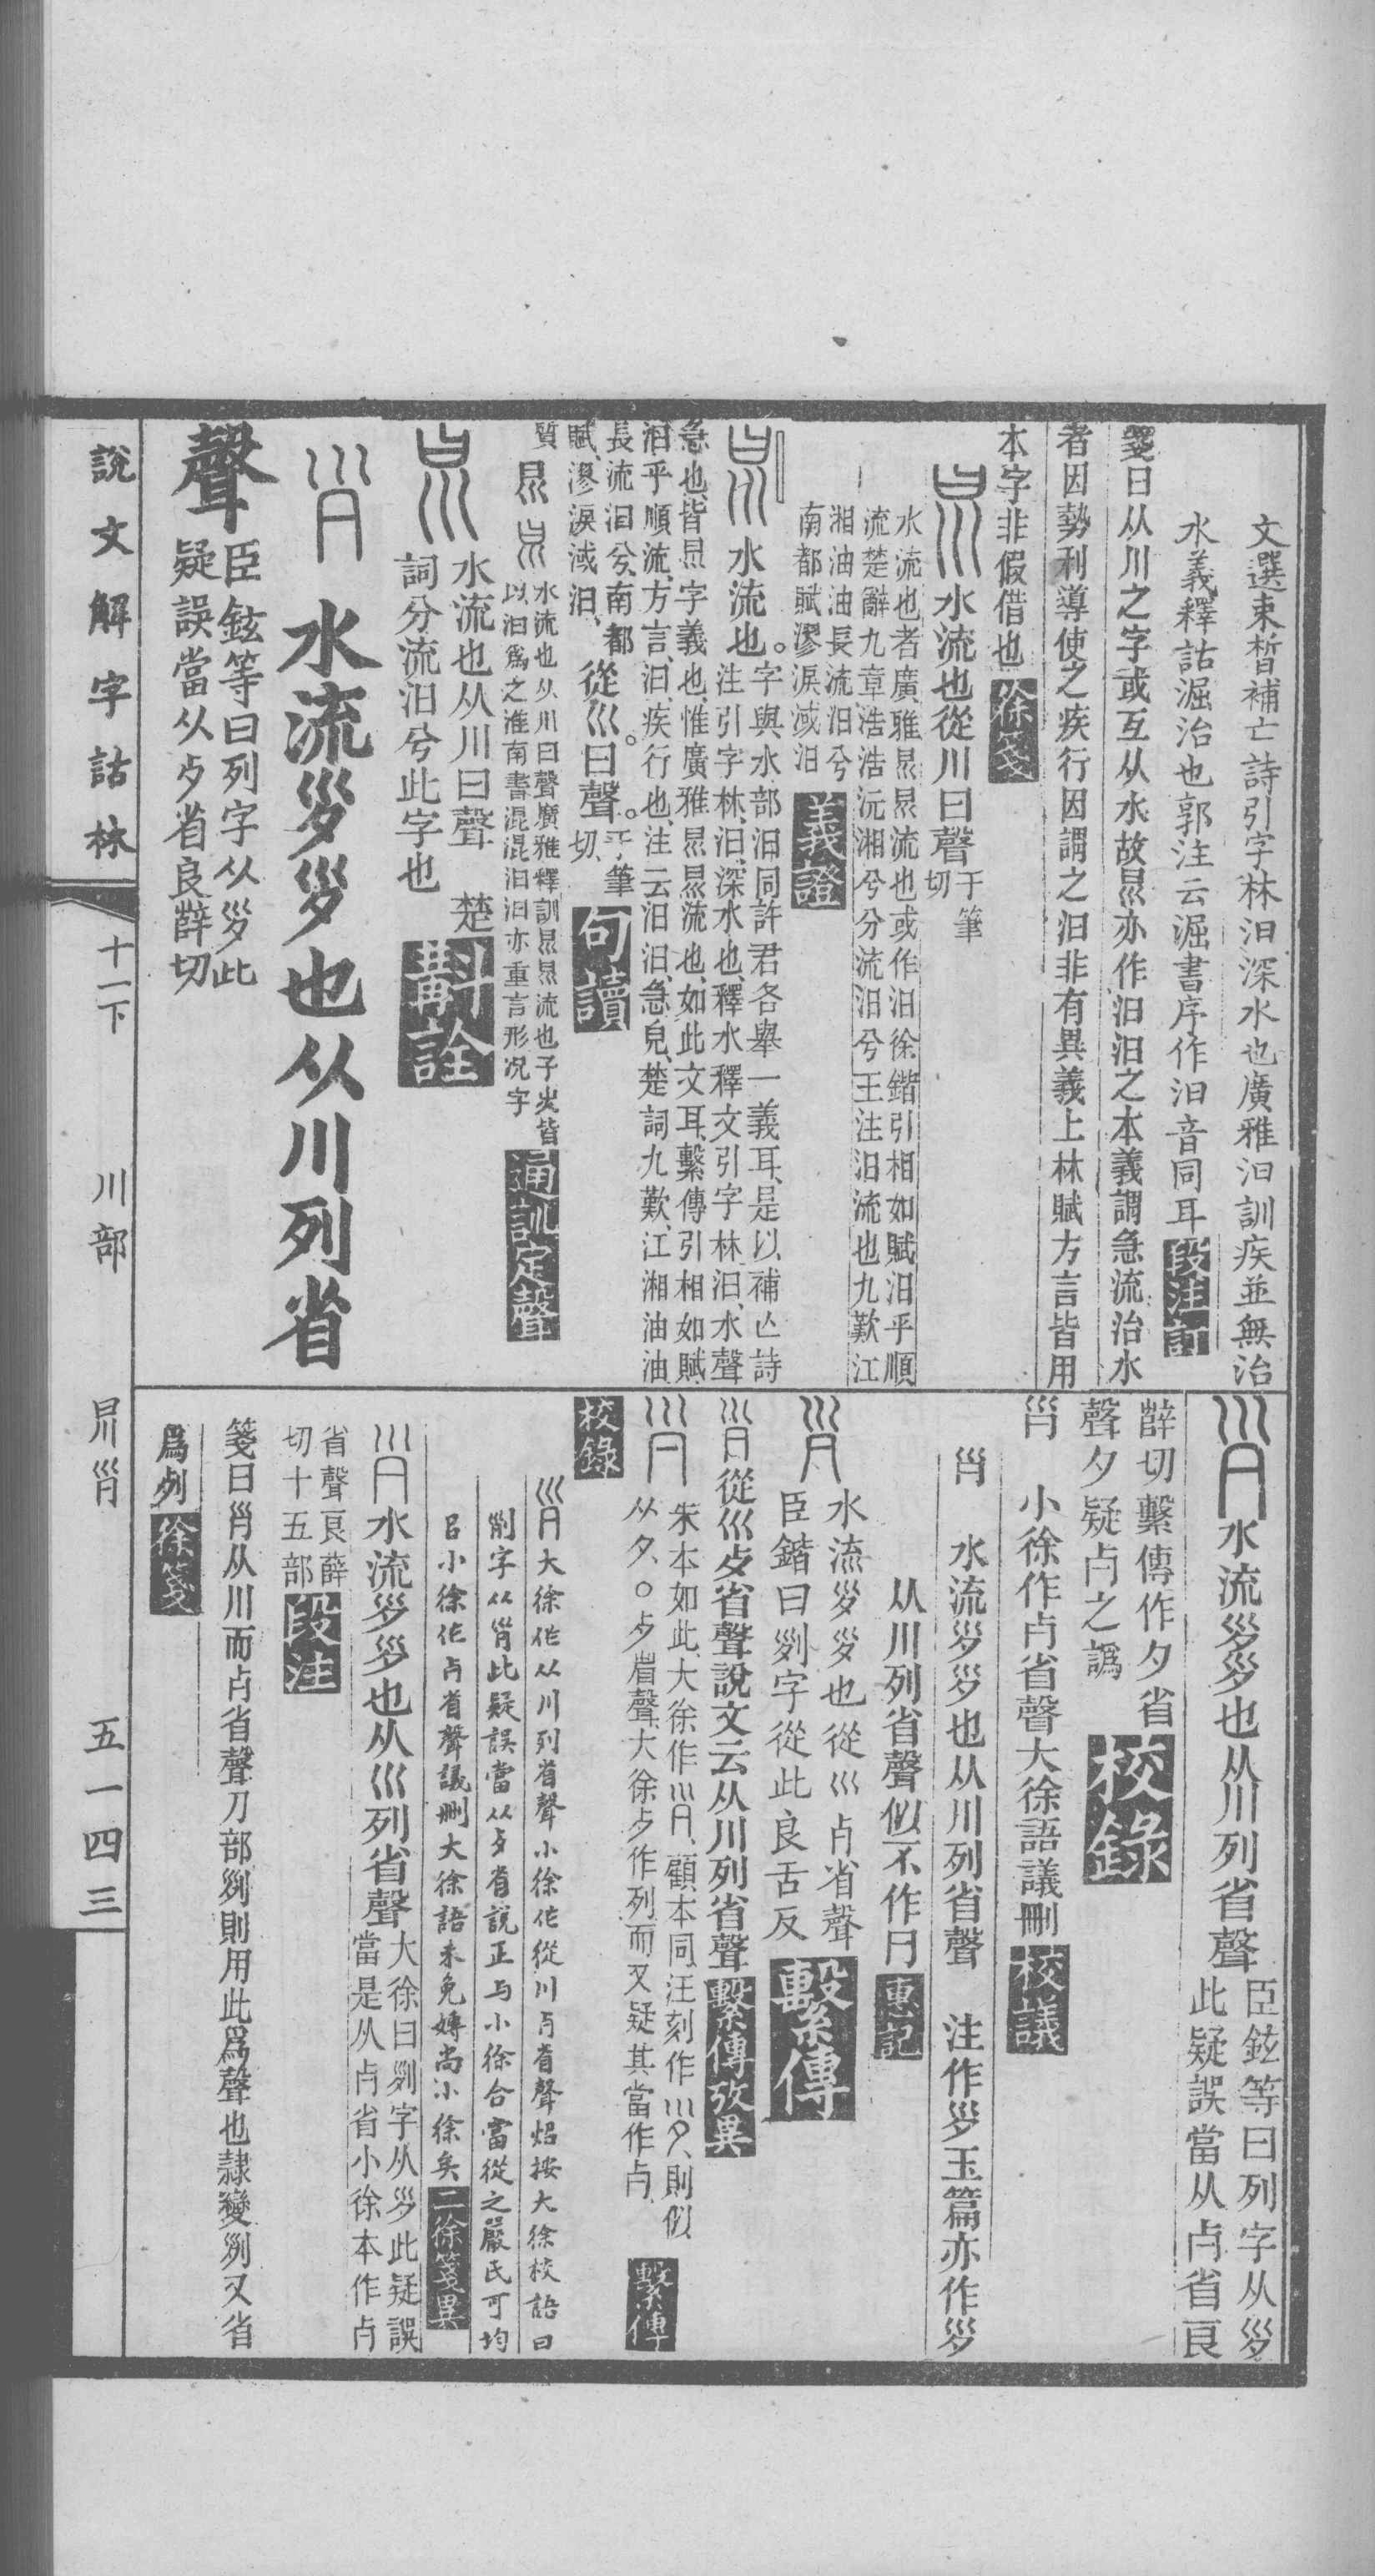 文選束晳補亡詩引字林汨深水也廣雅汨訓疾並無治
水義釋詁淈治也郭注云淈書序作汨音同耳 段注訂
箋曰从川之字或互从水故㫕亦作汨汨之本義謂急流治水
者因勢利導使之疾行因謂之汨非有異義上林賦方言皆用
本字非假借也 徐箋
水流也從川曰聲 于筆切
水流也者廣雅㫕㫕流也或作汨徐鍇引相如賦汨乎順
流楚辭九章浩浩沅湘兮分流汨兮王注汨流也九歎江
湘油油長流汨兮
南都賦漻淚淢汨 義證
水流也。字與水部汨同許君各舉一義耳、是以補亡詩
注引字林、汨、深水也、釋水釋文引字林汨、水聲
急也、皆㫕字義也、惟廣雅㫕㫕流也、如此文耳、繫傳引相如賦
汨乎順流、方言、汨、疾行也、注云汨汨、急皃、楚詞九歎、江湘油油
長流汨兮、南都
賦、漻淚淢汨、 從巛。曰聲。于筆切、 句讀
㫕 水流也从川曰聲廣雅釋訓㫕㫕流也子史皆
質 以汨爲之淮南書混混汨汨亦重言形况字 通訓定聲
水流也从川曰聲 楚
詞分流汨兮此字也 斠詮
水流㐡㐡也从川列省
聲 臣鉉等曰列字从㐡此
疑誤當从歺省良辥切
說文解字詁林 十一下 川部 㫕𡿪 五一四三
水流㐡㐡也从川列省聲 臣鉉等曰列字从㐡
此疑誤當从歺省良
辥切繫傳作夕省
聲夕疑歺之譌 校錄
𡿪 小徐作歺省聲大徐語議刪 校議
𡿪 水流㐡㐡也从川列省聲 注作㐡玉篇亦作㐡
从川列省聲似不作冃 惠記
水流㐡㐡也從巛歺省聲
臣鍇曰𠛱字從此良舌反 繫傳
從巛歺省聲說文云从川列省聲 繫傳攷異
朱本如此、大徐作、顧本同、汪刻作、則似
从夕、○歺省聲、大徐歺作列、而又疑其當作歺、 繫傳
校錄
大徐作从川列省聲小徐作從川歺省聲炤按大徐校語曰
𠛱字从𡿪此疑誤當从歺省說正与小徐合當從之嚴氏可均
㠯小徐作歺省聲議刪大徐語未免媷尚小徐矣 二徐箋異
水流㐡㐡也从巛列省聲 大徐曰𠛱字从㐡此疑誤
當是从歺省小徐本作歺
省聲良薛
切十五部 段注
箋曰𡿪从川而歺省聲刀部𠛱則用此爲聲也隷變𠛱又省
爲列 徐箋